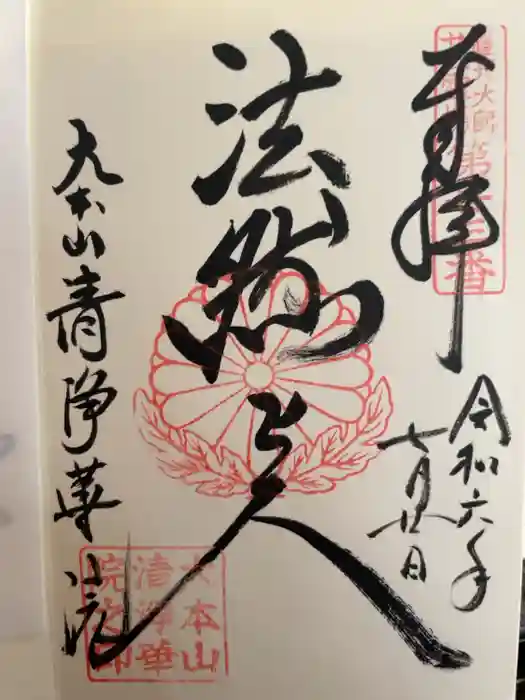 圓光大師
第廿三番
奉拝
令和六年
七月廿日
法然上人
大本山清浄華院
大本山
清浄華
院之印